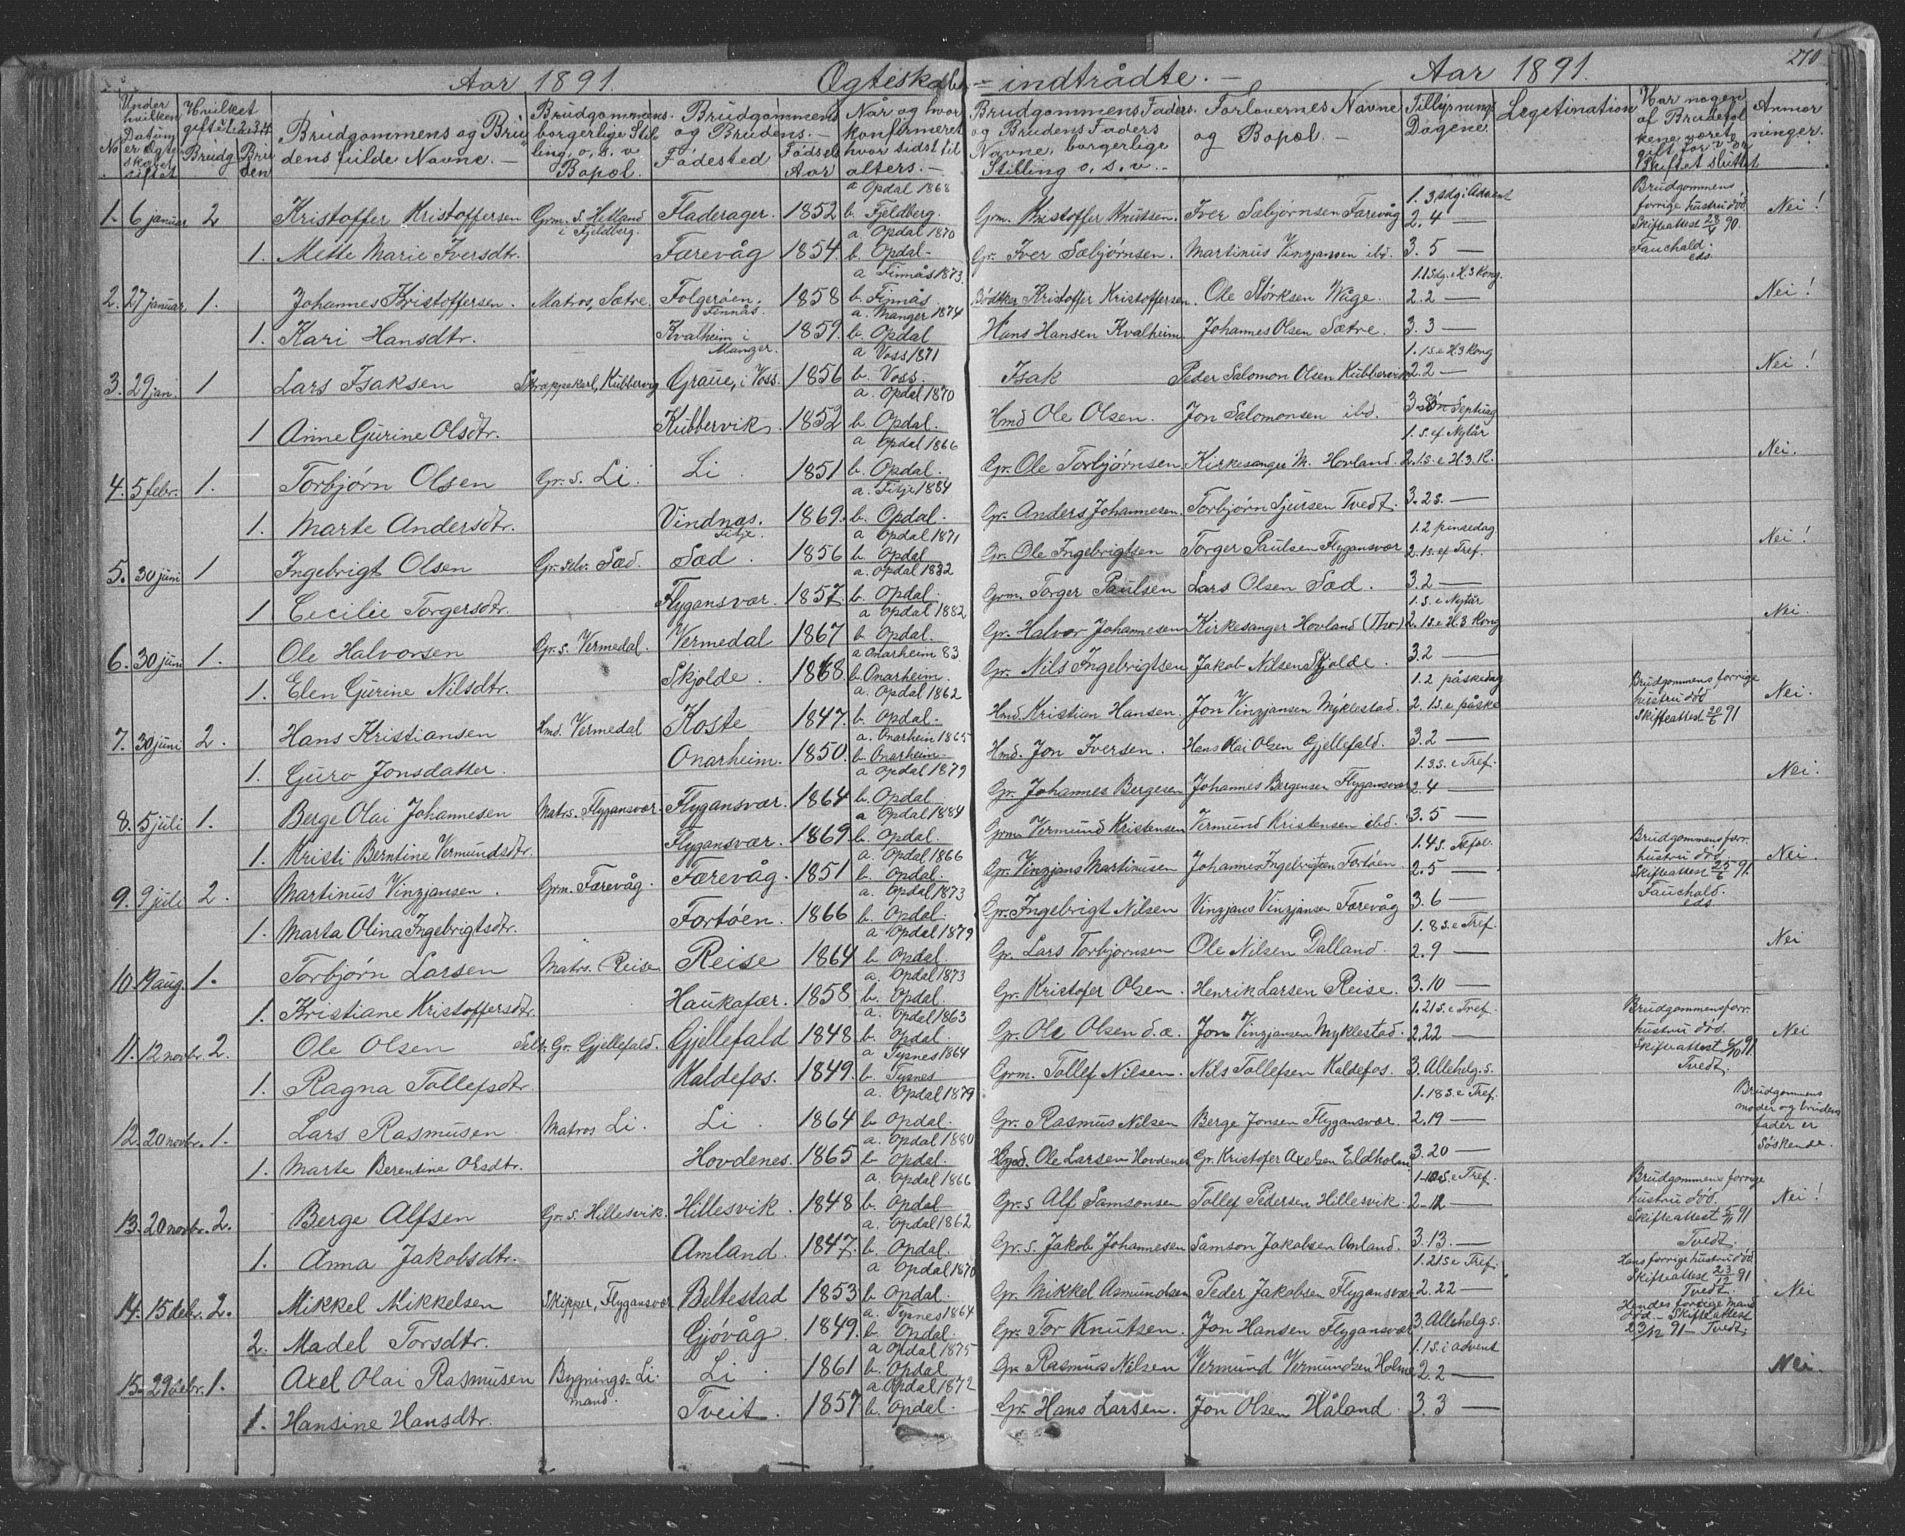 Aar 1891. Ögteskaber indtrådte. Aar 1891. 270
No Under hvilken Datum er Ögteskabet stiftet | Hvilket gifte 1.2.3.4 Brudg. Bruden | Brudgommens og Brudens fulde Navne. | Brudgommens borgerlige Stilling, o, s, v Bopæl. | Brudgommens og Brudens. Födested | Födsels Aar | Når og hvor konfirmeret hvor sidst til alters. | Brudgommens Faders og Brudens Faders Navne, borgerlige Stilling o. s. v. | Forlovernes Navne og Bopæl. | Tillysnings Dagene | Legetimation | Har nogen af Brudefolkene været gift, før er Skiftet sluttet | Anmærkninger.
1. 6 januar 2 Kristoffer Kristoffersen Grm. s. Hetland i Fjeldberg. Fladerager. 1852 a Opdal 1868 b. Fjeldberg. Grm. Kristoffer Knutsen. Iver Sæbjørnsen Færevåg 1. 3 sdg i Advent 2. 4 — Brudgommens forrige hustru död. Skifteattest 28/4 90. Fauchald. eds. Nei!
1. Mette Marie Iversdtr. Færevåg 1854. a Opdal 1870 b. Opdal. Gr. Iver Sæbjørnsen. Martinus Vinzjansen ibd. 3. 5 —
2. 27 januar 1. Johannes Kristoffersen. Matros, Sætre. Folgerøen, Finnås. 1858 a Finnås 1873. b. Finnås Bödtker Kristoffer Kristoffersen. Ole Störksen Wåge. 1. 1 Sdg. e H. 3 Kong. 2. 2 — Nei!
1. Kari Hansdtr. Kvalheim i Manger. 1859. a. Manger 1874 b. Opdal Hans Hansen Kvalheim Johannes Olsen Sætre. 3. 3 —
3. 29 jan. 1 Lars Isaksen Strappekarl, Kubbervig Graue, i Voss. 1856 a Voss 1871 b. Voss. Isak Peder Salomon Olsen Kubbervik 1. 1 s. e H. 3 Kong 2. 2 — Nei!
1 Anne Gurine Olsdtr. Kubbervik. 1852 a. Opdal 1870 b. Opdal. Hmd Ole Olsen. Jon Salomonsen ibd. 3. Sön Septuag
4. 5 febr. 1. Torbjørn Olsen Gr. s. Li. Li 1851 a Opdal 1866 b. Opdal. Gr. Ole Torbjørnsen Kirkesanger M. Hovland. 1. s. ef Nytår 2. 1 s. e H. 3. K. Nei.
1. Marte Andersdtr. Vindnæs. Fitje. 1869. a. Fitje 1884 b. Opdal. Gr. Anders Johannesen. Torbjørn Sjursen Tvedt. 3. 2 s. —
5. 30 juni 1 Ingebrigt Olsen Gr. selv. Sæd. Sæd. 1856 a Opdal 1871 b. Opdal Gr. Ole Ingebrigtsen Torger Paulsen Flygansvær 1. 2 pinsedag 2. 1 s. ef Tref. Nei!
1 Cecilie Torgersdtr. Flygansvær. 1857. a. Opdal 1882 b. Opdal. Grm. Torger Paulsen Lars Olsen Sæd. 3. 2 —
6. 30 juni 1. Ole Halvorsen Gr. s. Vermedal. Vermedal 1867 a Opdal 1882 b. Opdal. Gr. Halvor Johannesen Kirkesanger Hovland (Tho) 1. S. e Nytår 2. 1 s. e H. 3 Kong Nei.
1. Elen Gurine Nilsdtr. Skjolde. 1868. a Onarheim 83 b. Onarheim. Gr. Nils Ingebrigtsen Jakob Nilsen Skjolde. 3. 2 —
7. 30 juni 2. Hans Kristiansen Hmd. Vermedal Koste 1847. a. Opdal 1862 b. Opdal. Hmd. Kristian Hansen. Jon Vinzjansen Myklestad. 1. 2 påskedag 2. 1 s. e påske Brudgommens forrige hustru död Skifteattest 20/6 91 Nei.
1. Guro Jonsdatter. Onarheim. 1850. a. Onarheim 1865 b. Onarheim Hmd. Jon Iversen. Hans Olai Olsen Gjellefald. 3. 2 —
8. 5 juli 1. Berge Olai Johannesen Matrs. Flygansvær Flygansvær. 1864 a Opdal 1879 b. Opdal. Gr. Johannes Bergesen Johannes Bergesen Flygansvær 1. 3. s. e Tref. 2. 4 — Nei.
1. Kristi Berntine Vermundsdtr. Flygansvær. 1869. a Opdal 1884 b. Opdal. Grm. Vermund Kristensen Vermund Kristensen ibd. 3. 5 —
9. 9 juli 2. Martinus Vinzjansen. Grm. Færevåg. Færevåg. 1851 a. Opdal 1866 b. Opdal. Gr. Vinzjans Martinusen Johannes Ingebrigtsen Fortöen. 1. 4 s. Tref. 2. 5 — Brudgommens forr. hustru död. Skifteattest 25/6 91. Fauchald. eds. Nei.
1. Marta Olina Ingebrigtsdtr. Fortöen. 1866 a. Opdal 1873 b. Opdal. Gr. Ingebrigt Nilsen Vinzjans Vinzjansen Færevåg 3. 6 —
10. 19 aug. 1. Torbjørn Larsen Matrs. Reise Reise 1864 a. Opdal 1879 b. Opdal. Gr. Lars Torbjørnsen Ole Nilsen Dalland. 1. 8 s. e Tref. 2. 9 — Nei
1. Kristiane Kristoffersdtr. Haukafær. 1858. a. Opdal 1873 b. Opdal. Gr. Kristofer Olsen. Henrik Larsen Reise. 3. 10 —
11. 12 novbr. 2. Ole Olsen Selv. Gr. Gjellefald. Gjellefald 1848. a. Opdal 1863 b. Opdal Gr. Ole Olsen d. æ. Jon Vinzjansen Myklestad. 1. 21 s. e Tref. 2. 22 — Brudgommens forr. hustru död. Skifteattest 6/10 91 Tvedt. Nei
1. Ragna Tollefsdtr. Kaldefos. 1849. a Tysnes 1864 b. Tysnes Grm. Tollef Nilsen. Nils Tollefsen Kaldefos. 3. Allehelg. s.
12. 20 novbr. 1. Lars Rasmusen. Matros Li. Li. 1864 a. Opdal 1879 b. Opdal. Gr. Rasmus Nilsen Berge Jonsen Flygansvær. 1. 18 s. e Tref. 2. 19 — Brudgommens moder og brudens fader er Söskende.
1. Marte Berentine Olsdtr. Hovdenes. 1865 a. Opdal 1880 b. Opdal. Hmd. Ole Larsen Hovdenes Gr. Kristofer Axelsen Eldholm 3. 20 —
13. 20 novbr. 2. Berge Alfsen Gr. S. Hillesvik. Hillesvik. 1848 a. Opdal 1866 b. Opdal Gr. s Alf Samsonsen Tollef Pedersen Hillesvik. 2. 12 — Brudgommens forrige hustru död. Skifteattest 5/11 91 Tvedt. Nei!
1. Anna Jakobsdtr. Amland. 1847. a. Opdal 1862 b. Opdal. Gr. s. Jakob Johannesen Samson Jakobsen Amland. 3. 13. —
14. 15 debr. 2. Mikkel Mikkelsen Skipper, Flygansvær Beltestad 1853 a Opdal 1870 b. Opdal. Gr. Mikkel Asmundsen Peder Jakobsen Flygansvær 1. 21 s e Tref. 2. 22 — Hans forrige hustru död Skifteattest 23/12 91 Tvedt. Nei
2. Madel Torsdtr. Gjövåg. 1849. a. Tysnes 1864 b. Opdal. Gr. Tor Knutsen. Jon Hansen Flygansvær 3. Allehelg. s. Hendes forrige mand död. Skifteattest 23/12 91 — Tvedt.
15. 29 debr. 1. Axel Olai Rasmusen Bygningsmand. Li. Li. 1861 a Opdal 1875 b. Opdal Gr. Rasmus Nilsen Vermund Vermundsen Holme 1. 1 s. i advent 2. 2 — Nei.
1. Hansine Hansdtr. Tveit. 1857 a Opdal 1872 b. Opdal. Gr. Hans Larsen. Jon Olsen Håland. 3. 3 —